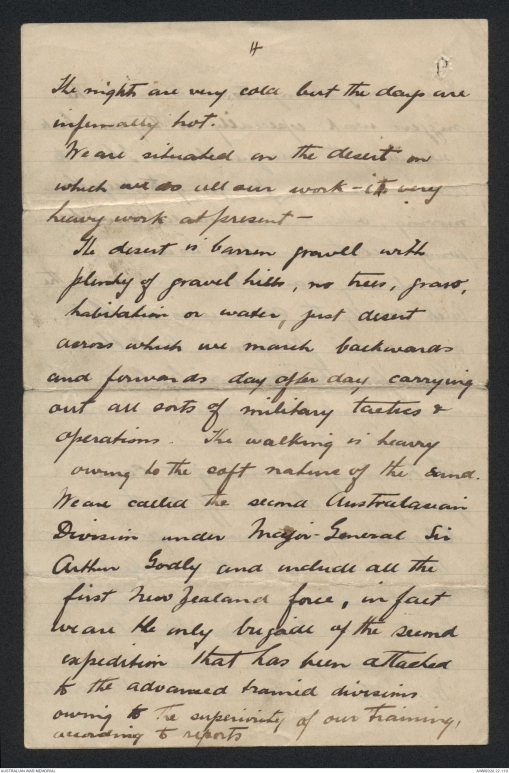 4
The nights are very cold but the days are
infernally hot.
We are situated on the desert on
which we do all our work - its very
heavy work at present -
The desert is barren gravell with
plenty of gravel hills, no trees, grass,
habitation or water, just desert
across which we march backwards
and forwards day after day carrying
out all sorts of military tactics &
operations. The walking is heavy
owing to the soft nature of the sand.
We are called the second Australasian
Division under Major-General Sir
Arthur Godly and include all the
first New Zealand force, in fact
we are the only brigade of the second
expedition that has been attached
to the advanced trained divisions
owing to the superiority of our training,
according to reports
AUSTRALIAN WAR MEMORIAL